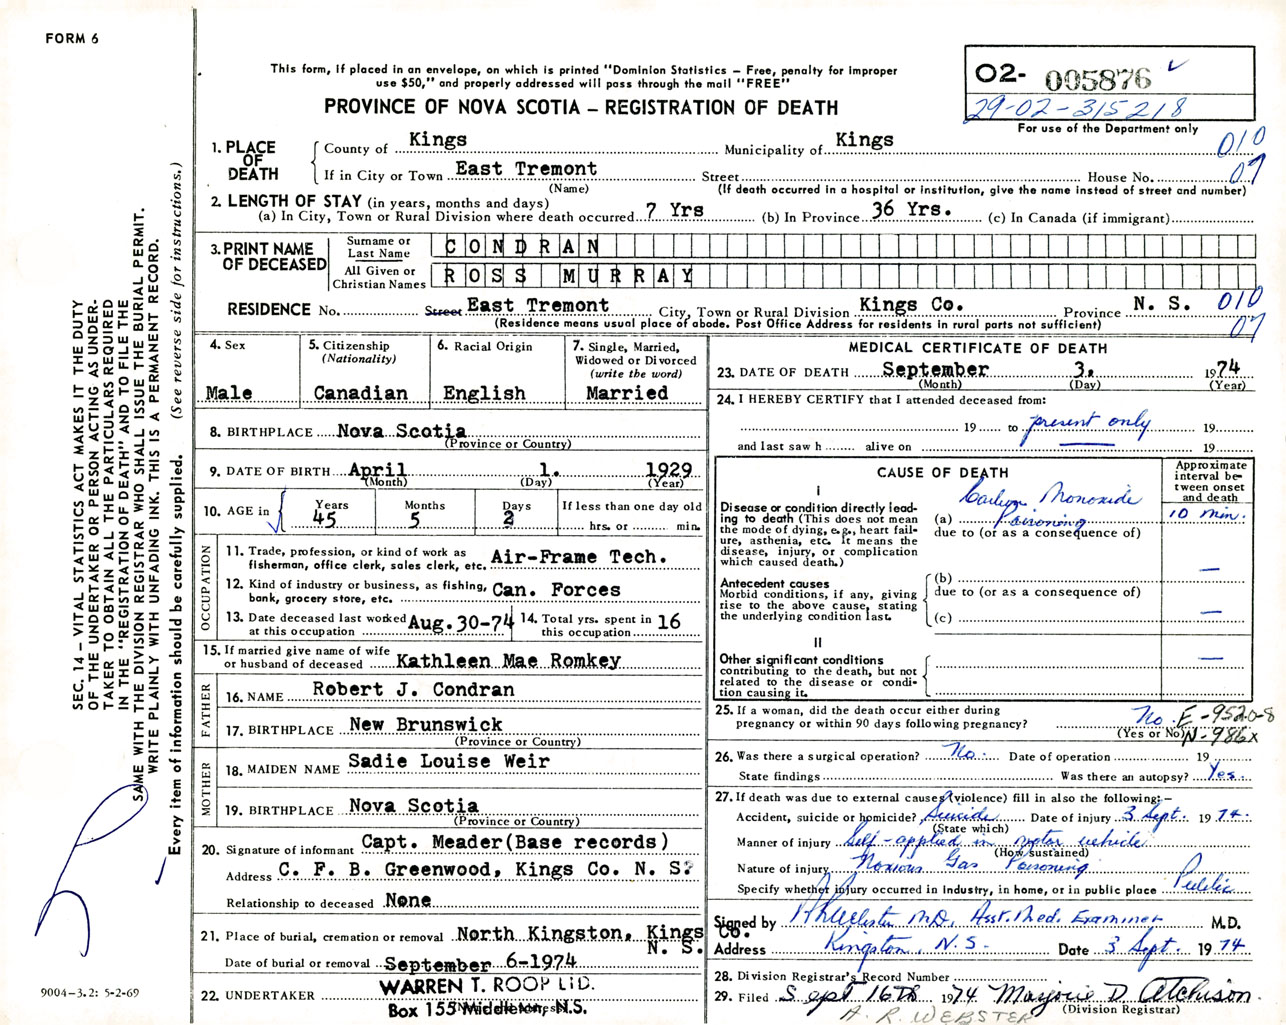 FORM 6
This form, if placed in an envelope, on which is printed "Dominion Statistics – Free, penalty for improper
use $50," and properly addressed will pass through the mail "FREE"
PROVINCE OF NOVA SCOTIA – REGISTRATION OF DEATH
O2- 005876
29-02-315218
For use of the Department only
010
07
1. PLACE OF DEATH
County of Kings Municipality of Kings
If in City or Town East Tremont Street House No.
(Name) (If death occurred in a hospital or institution, give the name instead of street and number)
2. LENGTH OF STAY (in years, months and days)
(a) In City, Town or Rural Division where death occurred 7 Yrs (b) In Province 36 Yrs. (c) In Canada (if immigrant)
3. PRINT NAME OF DECEASED
Surname or Last Name CONDRAN
All Given or Christian Names ROSS MURRAY
RESIDENCE No. Street East Tremont City, Town or Rural Division Kings Co. Province N. S. 010
(Residence means usual place of abode. Post Office Address for residents in rural parts not sufficient) 07
4. Sex
Male
5. Citizenship
(Nationality)
Canadian
6. Racial Origin
English
7. Single, Married,
Widowed or Divorced
(write the word)
Married
8. BIRTHPLACE Nova Scotia
(Province or Country)
9. DATE OF BIRTH April 1. 1929
(Month) (Day) (Year)
10. AGE in Years Months Days If less than one day old
45 5 2 hrs. or min.
OCCUPATION
11. Trade, profession, or kind of work as
fisherman, office clerk, sales clerk, etc. Air-Frame Tech.
12. Kind of industry or business, as fishing,
bank, grocery store, etc. Can. Forces
13. Date deceased last worked
at this occupation Aug.30-74
14. Total yrs. spent in
this occupation 16
15. If married give name of wife
or husband of deceased Kathleen Mae Romkey
FATHER
16. NAME Robert J. Condran
17. BIRTHPLACE New Brunswick
(Province or Country)
MOTHER
18. MAIDEN NAME Sadie Louise Weir
19. BIRTHPLACE Nova Scotia
(Province or Country)
20. Signature of informant Capt. Meader(Base records)
Address C. F. B. Greenwood, Kings Co. N. S.
Relationship to deceased None
21. Place of burial, cremation or removal North Kingston, Kings Co.
N. S.
Date of burial or removal September 6-1974
22. UNDERTAKER WARREN T. ROOP LTD.
Box 155 Middleton, N.S.
MEDICAL CERTIFICATE OF DEATH
23. DATE OF DEATH September 3. 1974
(Month) (Day) (Year)
24. I HEREBY CERTIFY that I attended deceased from:
19 to present only 19
and last saw h alive on 19
CAUSE OF DEATH
Approximate
interval be-
tween onset
and death
I
Disease or condition directly lead-
ing to death (This does not mean
the mode of dying, e.g., heart fail-
ure, asthenia, etc. It means the
disease, injury, or complication
which caused death.)
(a) Carbon Monoxide
Poisoning
10 min.
due to (or as a consequence of)
Antecedent causes
Morbid conditions, if any, giving
rise to the above cause, stating
the underlying condition last.
(b) —
due to (or as a consequence of)
(c) —
II
Other significant conditions
contributing to the death, but not
related to the disease or condi-
tion causing it.
—
25. If a woman, did the death occur either during
pregnancy or within 90 days following pregnancy? No. E-952.0-8
(Yes or No) N-986x
26. Was there a surgical operation? No. Date of operation 19
State findings Was there an autopsy? Yes.
27. If death was due to external causes (violence) fill in also the following:–
Accident, suicide or homicide? Suicide Date of injury 3 Sept. 1974.
(State which)
Manner of injury Self-applied in motor vehicle
(How sustained)
Nature of injury Noxious Gas Poisoning
Specify whether injury occurred in industry, in home, or in public place Public
Signed by M.D. Asst. Med. Examiner M.D.
Address Kingston, N.S. Date 3 Sept. 1974
28. Division Registrar's Record Number
29. Filed Sept 16th 1974 Marjorie D. Atchison.
(Division Registrar)
A. R. WEBSTER
SEC. 14 – VITAL STATISTICS ACT MAKES IT THE DUTY
OF THE UNDERTAKER OR PERSON ACTING AS UNDER-
TAKER TO OBTAIN ALL THE PARTICULARS REQUIRED
IN THE "REGISTRATION OF DEATH" AND TO FILE THE
SAME WITH THE DIVISION REGISTRAR WHO SHALL ISSUE THE BURIAL PERMIT.
WRITE PLAINLY WITH UNFADING INK. THIS IS A PERMANENT RECORD.
Every item of information should be carefully supplied. (See reverse side for instructions.)
9004-3.2: 5-2-69